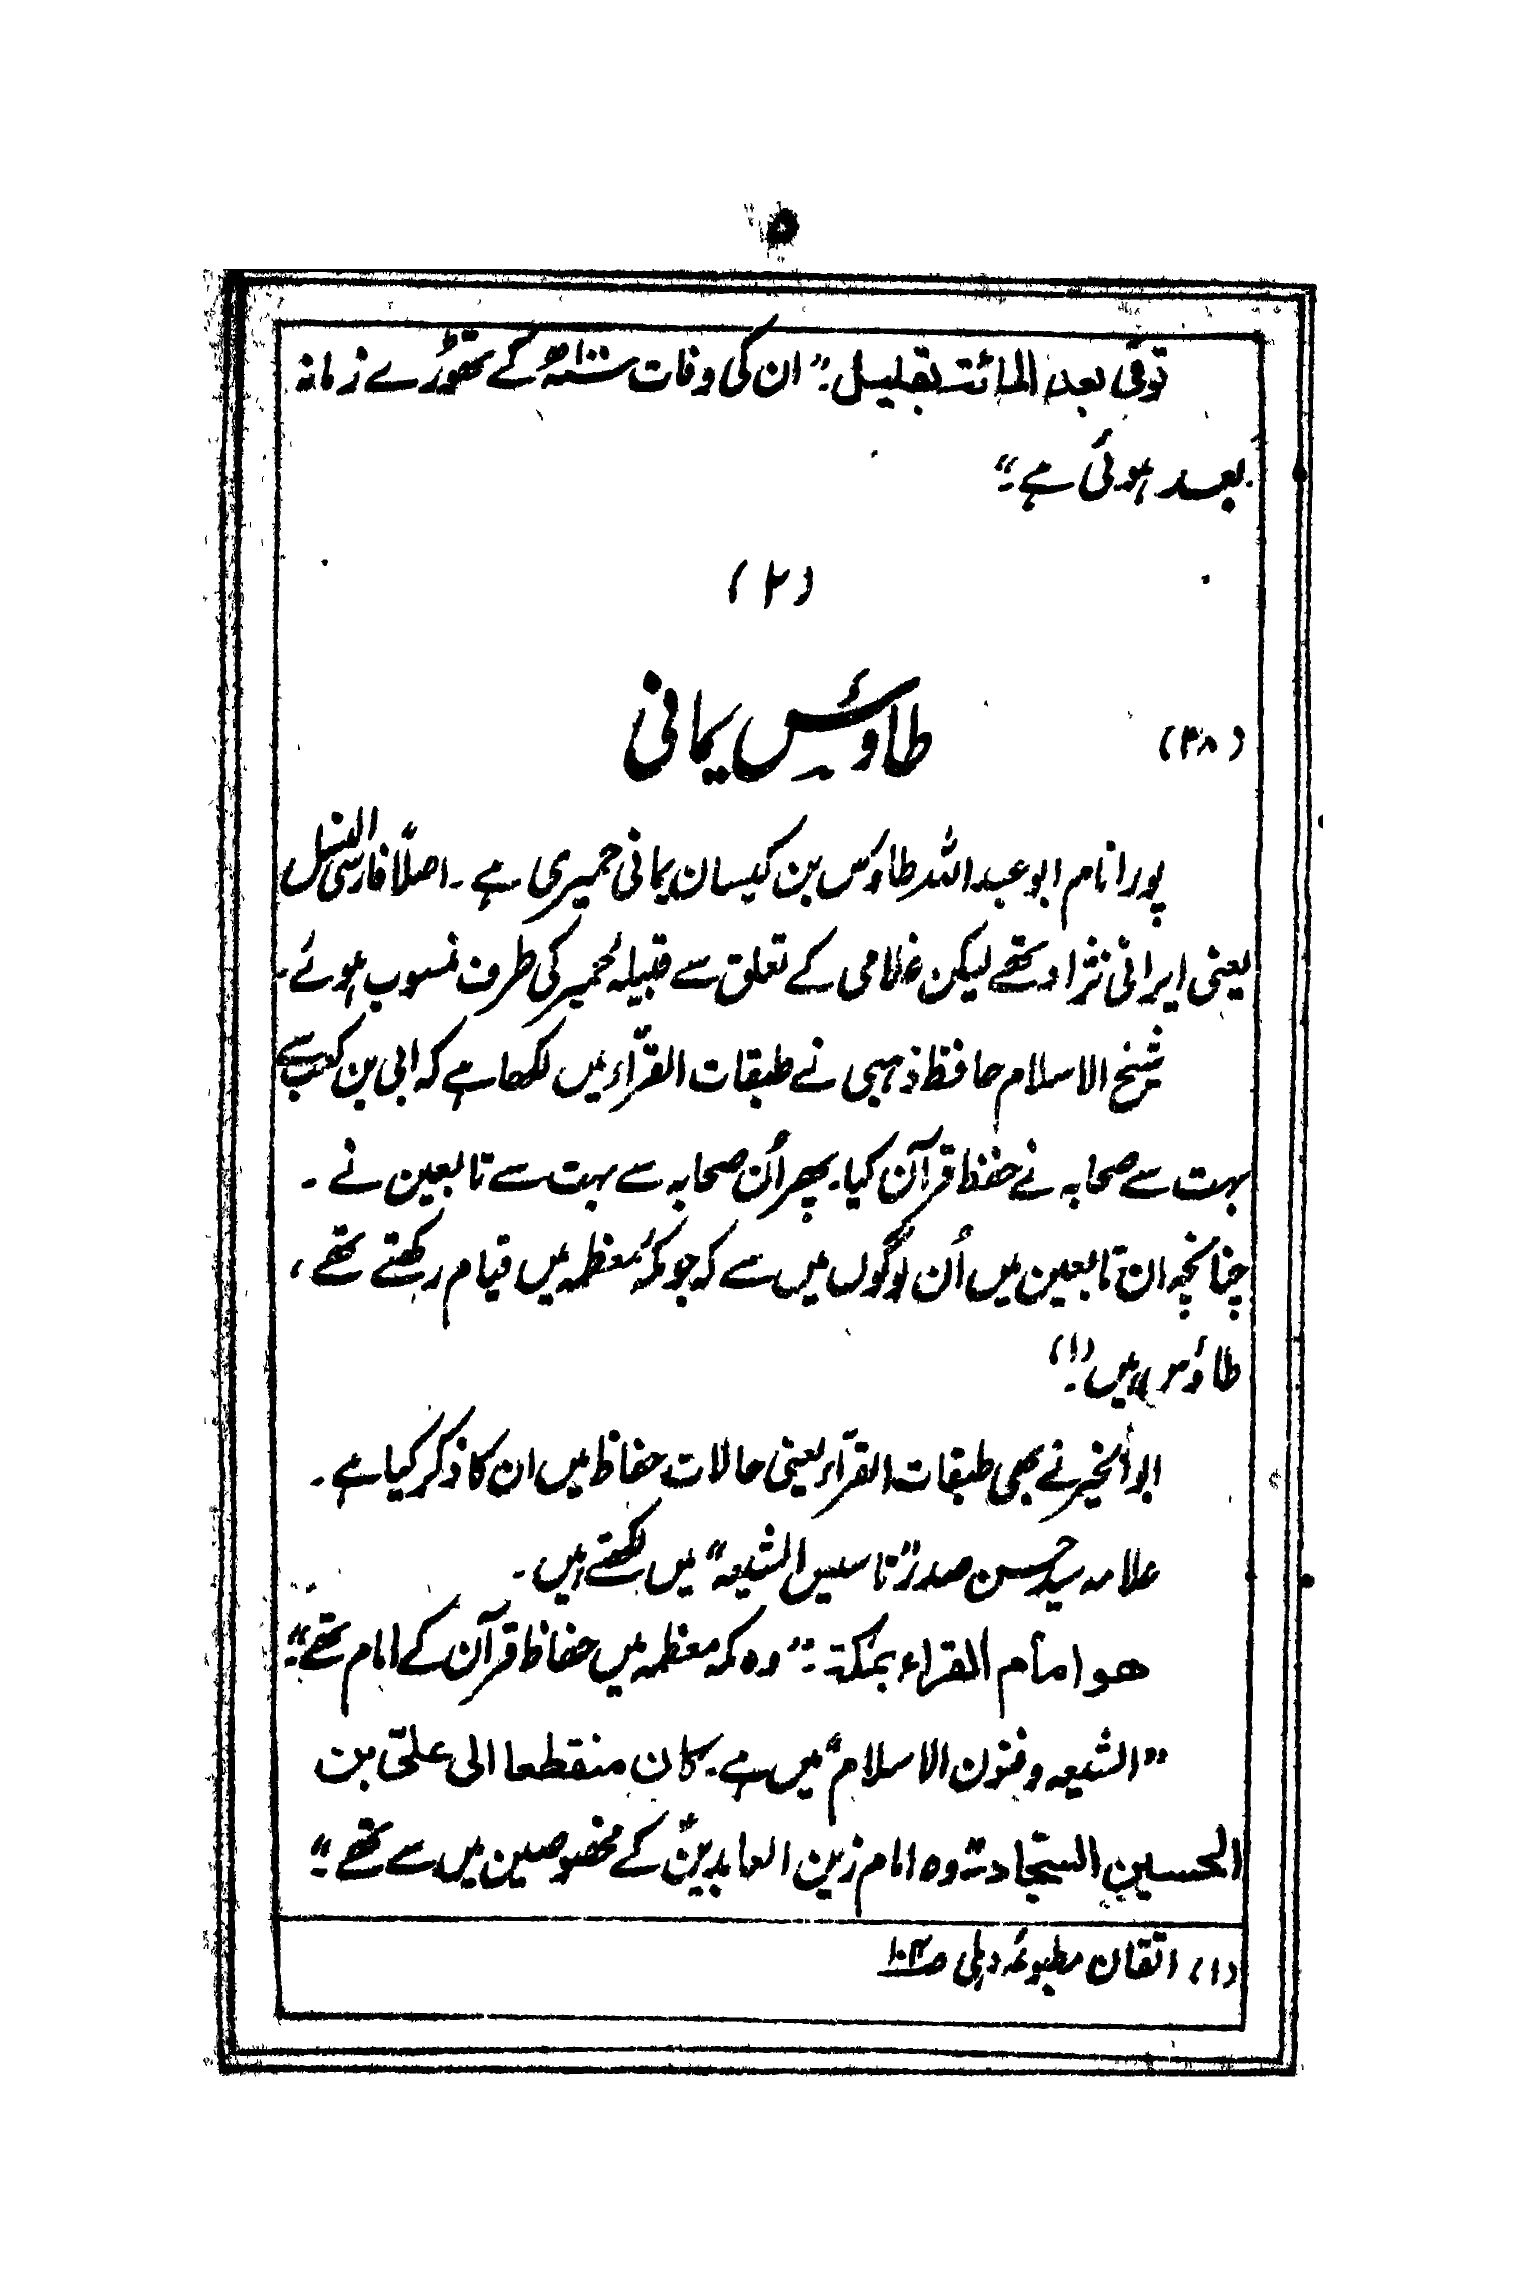 ۵
توفی بعد المائۃ بقلیل۔" ان کی وفات سنہ ۱۰۰ھ کے تھوڑے زمانہ
بعد ہوئی ہے۔"
(۲)
(۳۸) طاؤس یمانی
پورا نام ابو عبد اللہ طاؤس بن کیسان یمانی حمیری ہے۔ اصلاً فارسی النسل
یعنی ایرانی نژاد تھے لیکن غلامی کے تعلق سے قبیلہ حُمیر کی طرف منسوب ہوئے۔
شیخ الاسلام حافظ ذہبی نے طبقات القرّاء میں لکھا ہے کہ ابی بن کعب سے
بہت سے صحابہ نے حفظ قرآن کیا۔ پھر اُن صحابہ سے بہت سے تابعین نے۔
چنانچہ ان تابعین میں اُن لوگوں میں سے کہ جو مکۂ معظمہ میں قیام رکھتے تھے،
طاؤس ہیں۔(۱)
ابو الخیر نے بھی طبقات القرّاء یعنی حالات حفاظ میں ان کا ذکر کیا ہے۔
علامہ سید حسن صدر "تاسیس الشیعہ" میں لکھتے ہیں۔
ھو امام القراء بمکۃ۔" وہ مکہ معظمہ میں حفاظ قرآن کے امام تھے۔"
"الشیعہ و فنون الاسلام" میں ہے۔ کان منقطعا الی علیّ بن
الحسین السجاد وہ امام زین العابدینؑ کے مخصوصین میں سے تھے۔"
(۱) اتقان مطبوعہ دہلی صـ۱۰۴